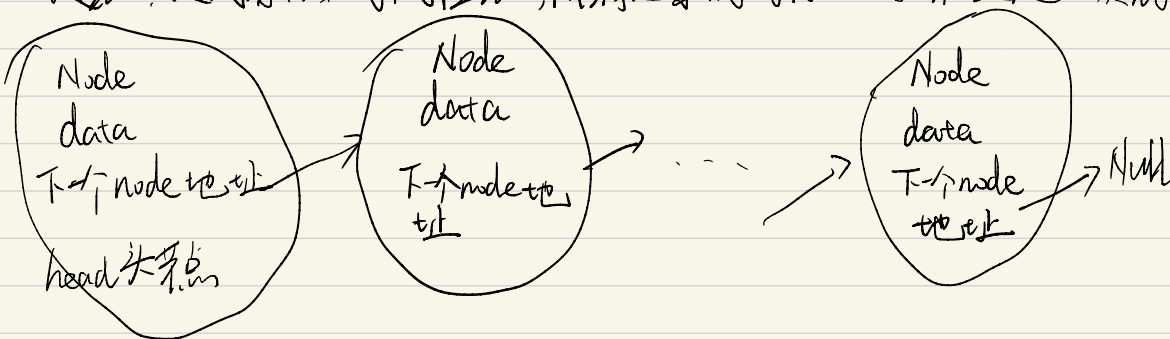 Node
data
下一个node地址
head头节点
Node
data
下一个node地
址
Node
data
下一个node
地址
Null